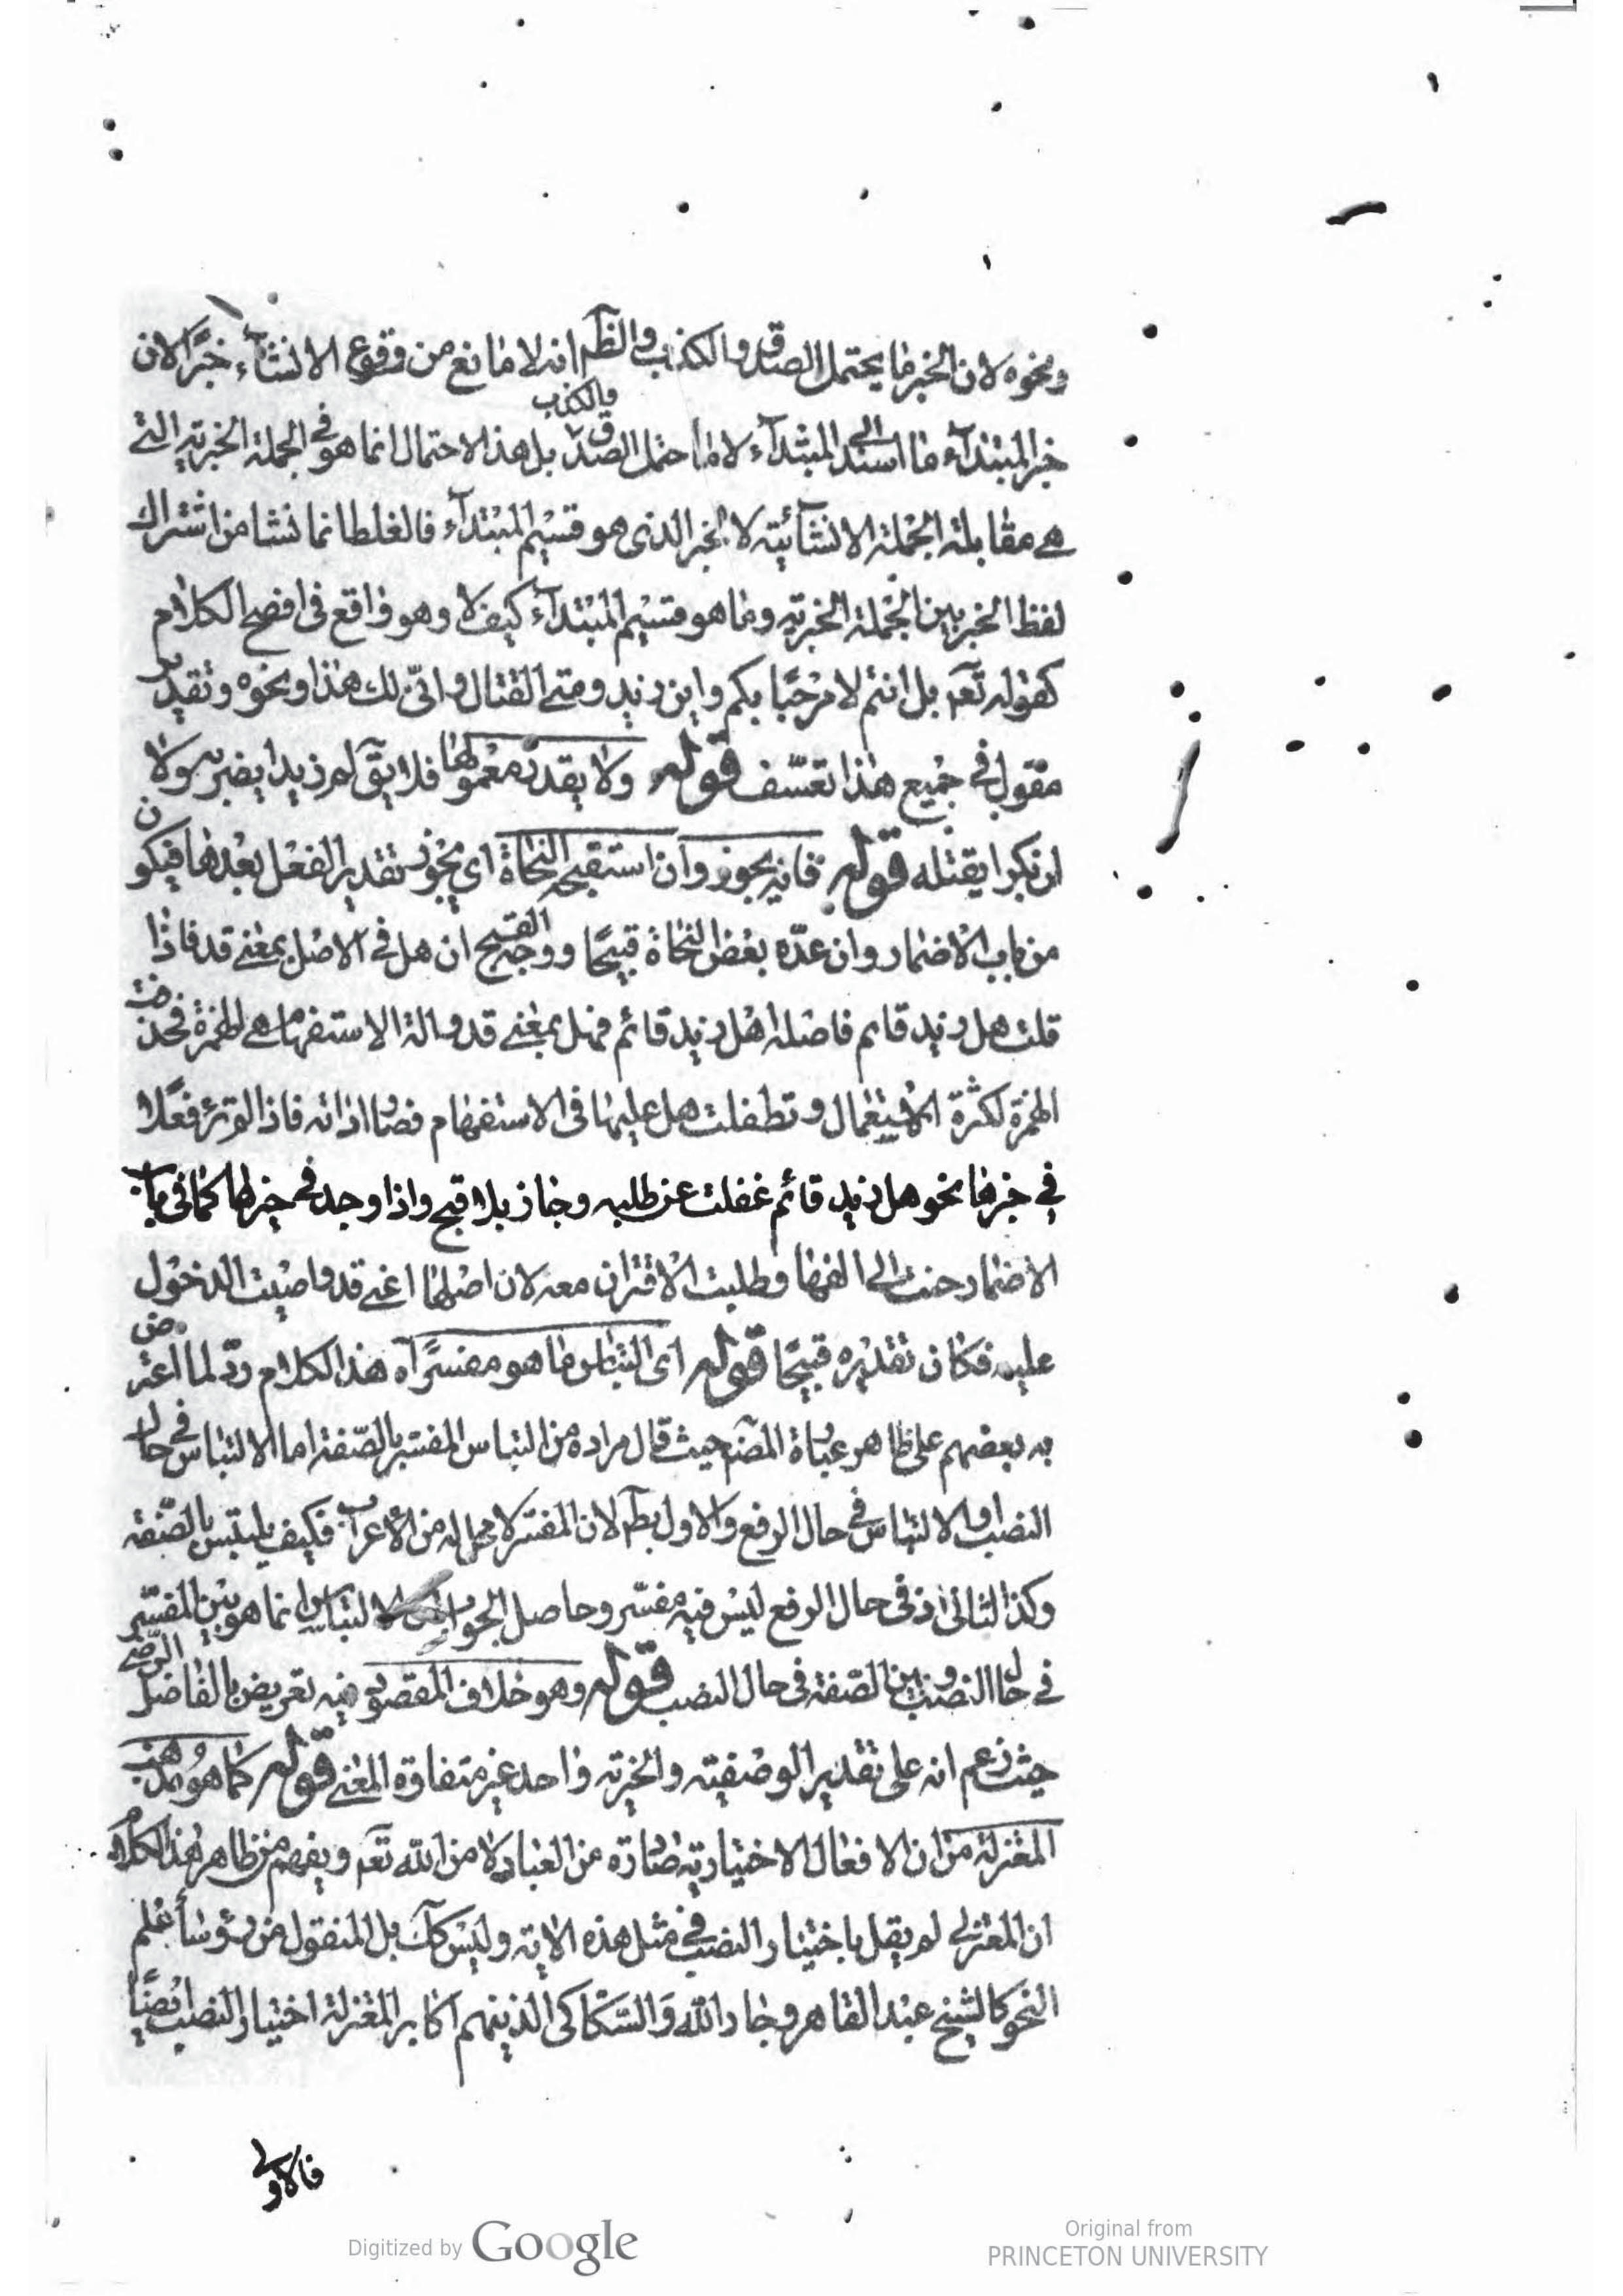 ونحوه لان الخبر ما يحتمل الصدق والكذب والظم انه لا مانع من وقوع الانشاء خبرًا لان
خبر المبتدآء ما اسند الى المبتدآء لا ما احتمل الصدق والكذب بل هذا الاحتمال انما هو في الجملة الخبرية التي
هي مقابلة الجملة الانشآئية لا الخبر الذى هو قسيم المبتدآء فالغلط انما نشا من اشتراك
لفظ الخبر بين الجملة الخبرية وما هو قسيم المبتدآء كيف لا وهو واقع فى افصح الكلام
كقوله تعم بل انتم لا مرحبًا بكم واين زيد ومتى القتال وانّى لك هذا ونحوه وتقدير
مقول في جميع هذا تعسّف قوله ولا يقدر معمولها فلا يق لم زيدا يضرب ولا
ان بكرا يقتله قوله فانه يجوز وان استقبحه النحاة اي يجوز تقدير الفعل بعدها فيكون
من باب الاضمار وان عدّه بعض النحاة قبيحًا ووجه القبح ان هل فى الاصل بمعنى قد فاذا
قلت هل زيد قام فاصله اهل زيد قائم فهل بمعنى قد والة الاستفهام هي الهمزة فحذفت
الهمزة لكثرة الاستعمال وتطفلت هل عليها فى الاستفهام فصار اداته فاذا لم تر فعلا
في خبرها نحو هل زيد قائم غفلت عن طلبه وجاز بلا قبح واذا وجد في خبرها كما فى باب
الاضمار حنت الى الفها وطلبت الاقتران معه لان اصلها اعنى قد واجبت الدخول
عليه فكان تقديره قبيحًا قوله اى التباس ما هو مفسرًا اه هذا الكلام ردّ لما اعترض
به بعضهم على ظاهر عبارة المصنم حيث قال مراده من التباس المفسر بالصّفة اما الالتباس في حال
النصب او الالتباس في حال الرفع والاول بطم لان المفسر لا محل له من الاعراب فكيف يلتبس بالصّفة
وكذا الثانى اذ فى حال الرفع ليس فيه مفسّر وحاصل الجواب ان الالتباس انما هو بين المفسّر
في حال النصب وبين الصّفة فى حال النصب قوله وهو خلاف المقصود فيه تعريض بالفاضل الرضي
حيث زعم انه على تقدير الوصفية والخبرية واحد غير متفاوة المعنى قوله كما هو مذهب
المعتزلة من ان الافعال الاختيارية صادرة من العباد لا من الله تعم ويفهم من ظاهر هذا الكلام
ان المعتزلى لم يقل باختيار النصب في مثل هذه الاية وليس كك بل المنقول من رؤسآء علم
النحو كالشيخ عبد القاهر وجار الله والسّكاكى الذينهم اكابر المعتزلة اختيار النصب ايضًا
فالاولى
Digitized by Google
Original from
PRINCETON UNIVERSITY